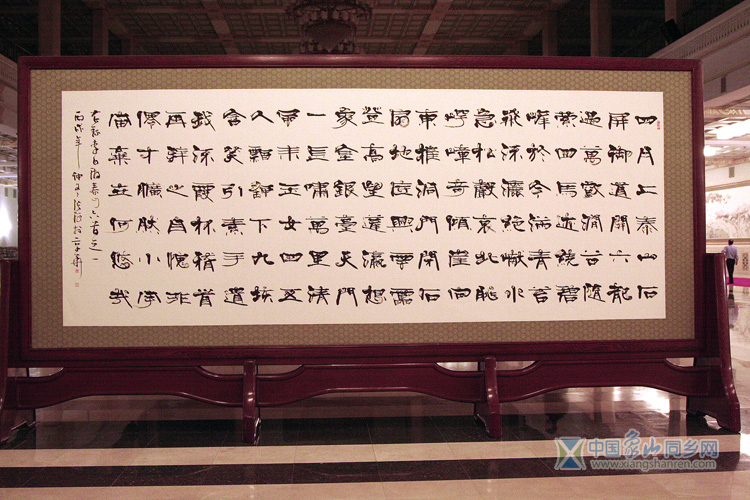 四月上泰山石
屏御道開六龍
過萬壑澗谷隨
縈回馬迹繞碧
峰於今滿青苔
飛流灑絕巘水
急松聲哀北眺
崿嶂奇傾崖向
東摧洞門閉石
扇地底興雲雷
登高望蓬瀛想
象金銀臺天門
一長嘯萬里清
風來玉女四五
人飄飖下九垓
含笑引素手遺
我流霞杯稽首
再拜之自愧非
僊才曠然小宇
宙棄世何悠哉
右錄李白游泰山六首之一
丙戌年仲夏於京華
中国象山同乡网
www.xiangshanren.com